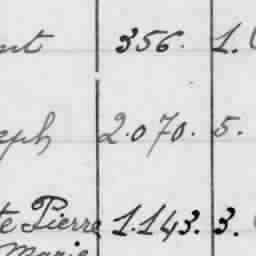 356. 1.
eph 2.070. 5.
te Pierre 1.143. 3.
Marie